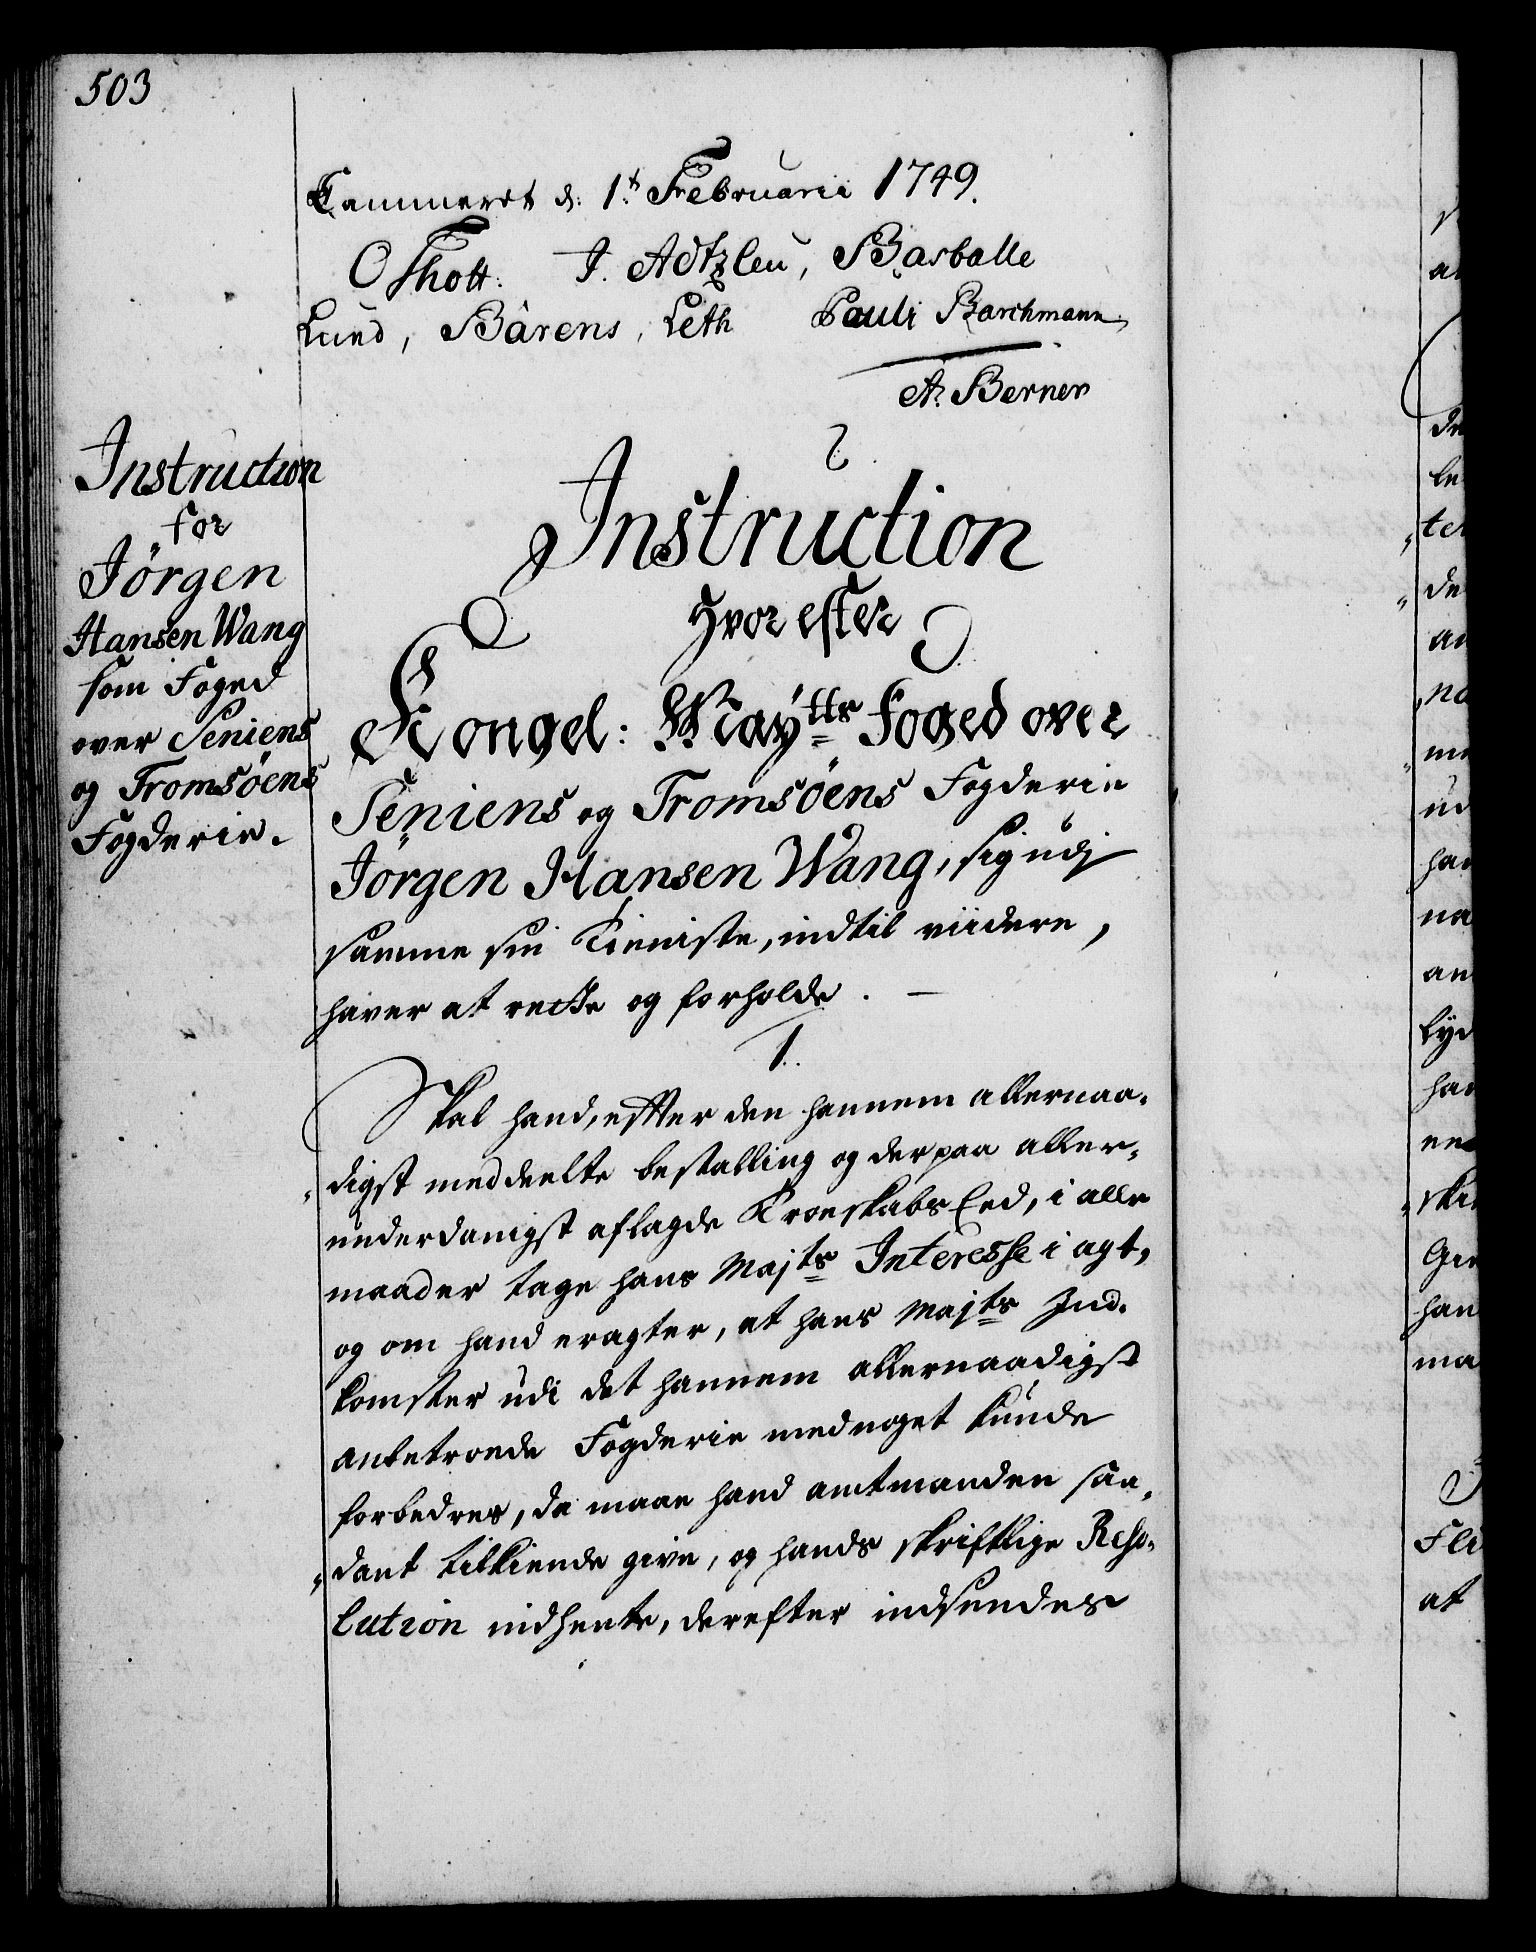 503
Cammeret d: 1.t Februarii 1749.
O Thott. J. Adtzleu, Basballe
Lund, Bärens, Leth Pauli Barchmann,
A. Berner
Instruction
for
Jörgen
Hansen Wang
som Foged
over Seniens
og Tromsöens
Fogderie.
Instruction
Hvorefter
Kongel: Maytts Foged over
Seniens og Tromsöens Fogderie
Jörgen Hansen Wang, sig udj
samme sin Tieniste, indtil viidere,
haver at rette og forholde.
1.
Skal hand, efter den hannem allernaa-
digst meddeelte bestalling og derpaa aller-
underdanigst aflagde Troeskabs Eed, i alle
maader tage hans Majts Interesse i agt,
og om hand eragter, at hans Majts Ind-
komster udi det hannem allernaadigst
anbetroede Fogderie med noget kunde
forbedres, da maae hand amtmanden saa-
dant tilkiende give, og hands skriftlige Reso-
lution indhente, derefter indsendes